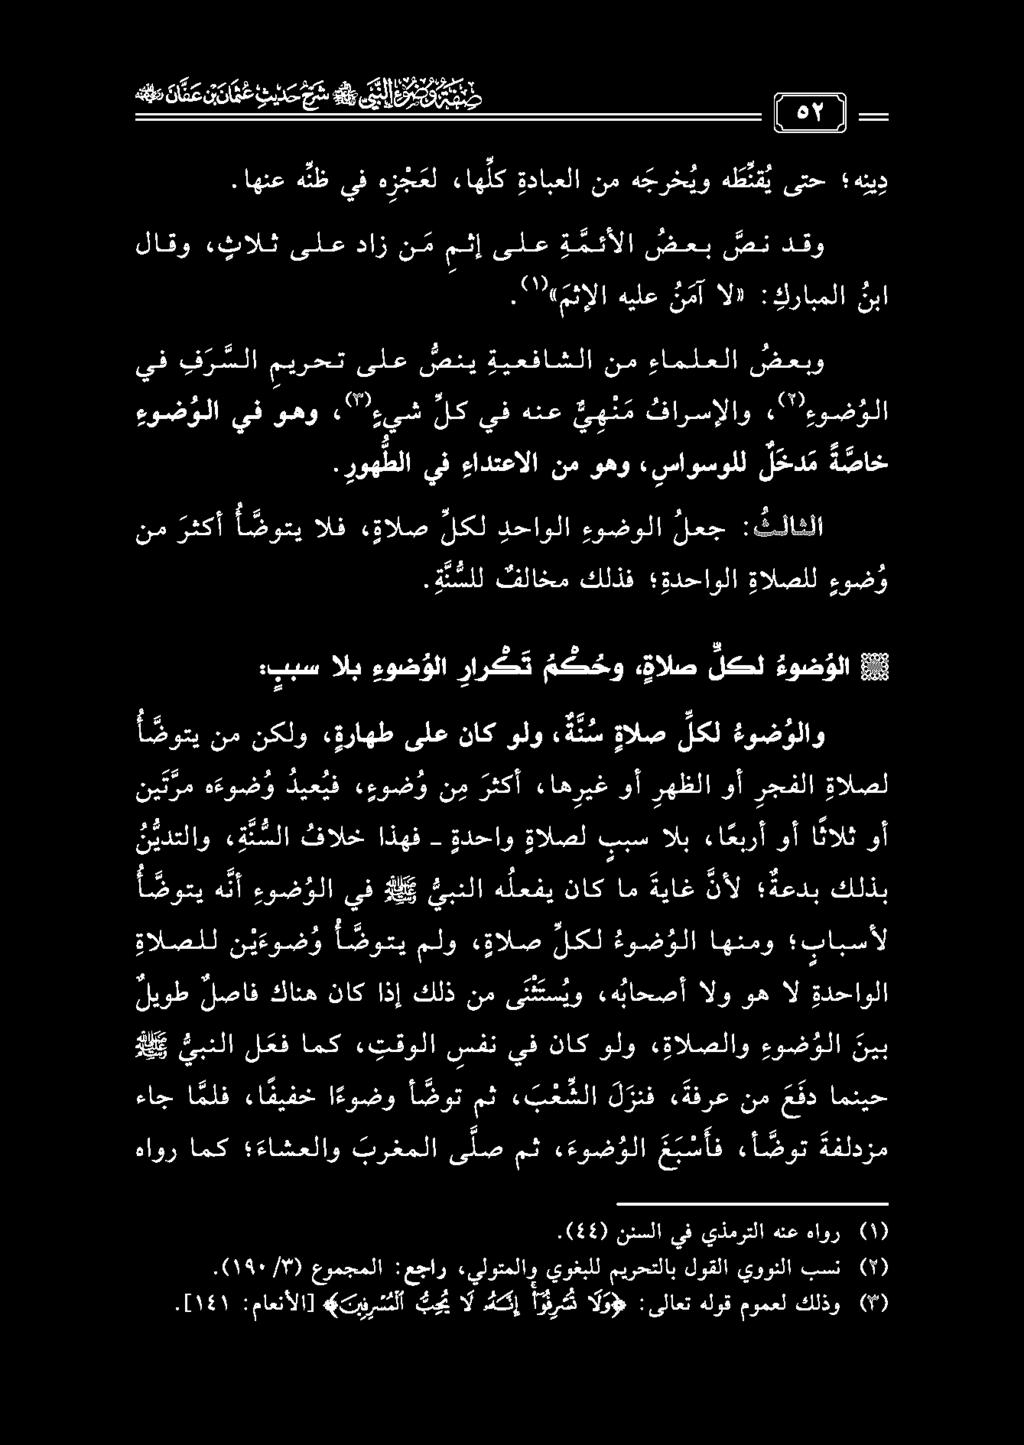 صِفَةُ وُضُوءِ النَّبِيِّ ﷺ شَرْحُ حَدِيثِ عُثْمَانَ بْنِ عَفَّانَ رضي الله عنه
٥٢
دِينِه؛ حتى يُقنِّطَه ويُخرجَه من العبادةِ كلِّها، لعَجْزِه في ظنِّه عنها.
وقد نصَّ بعضُ الأئمَّةِ على إثمِ مَن زاد على ثلاثٍ، وقال
ابنُ المباركِ: «لا آمَنُ عليه الإثمَ»(١).
وبعضُ العلماءِ من الشافعيةِ ينصُّ على تحريمِ السَّرَفِ في
الوُضوءِ(٢)، والإسرافُ مَنْهِيٌّ عنه في كلِّ شيءٍ(٣)، وهو في الوُضوءِ
خاصَّةً مَدخَلٌ للوسواسِ، وهو من الاعتداءِ في الطُّهورِ.
الثالثُ: جعلُ الوضوءِ الواحدِ لكلِّ صلاةٍ، فلا يتوضَّأُ أكثرَ من
وُضوءٍ للصلاةِ الواحدةِ؛ فذلك مخالفٌ للسُّنَّةِ.
الوُضوءُ لكلِّ صلاةٍ، وحُكْمُ تَكْرارِ الوُضوءِ بلا سببٍ:
والوُضوءُ لكلِّ صلاةٍ سُنَّةٌ، ولو كان على طهارةٍ، ولكن من يتوضَّأُ
لصلاةِ الفجرِ أو الظهرِ أو غيرِها، أكثرَ مِن وُضوءٍ، فيُعيدُ وُضوءَه مرَّتَين
أو ثلاثًا أو أربعًا، بلا سببٍ لصلاةٍ واحدةٍ ـ فهذا خلافُ السُّنَّةِ، والتديُّنُ
بذلك بدعةٌ؛ لأنَّ غايةَ ما كان يفعلُه النبيُّ ﷺ في الوُضوءِ أنَّه يتوضَّأُ
لأسبابٍ؛ ومنها الوُضوءُ لكلِّ صلاةٍ، ولم يتوضَّأْ وُضوءَيْنِ للصلاةِ
الواحدةِ لا هو ولا أصحابُه، ويُستَثْنَى من ذلك إذا كان هناك فاصلٌ طويلٌ
بينَ الوُضوءِ والصلاةِ، ولو كان في نفسِ الوقتِ، كما فعَل النبيُّ ﷺ
حينما دفَعَ من عرفةَ، فنزلَ الشِّعْبَ، ثم توضَّأ وضوءًا خفيفًا، فلمَّا جاء
مزدلفةَ توضَّأ، فأَسْبَغَ الوُضوءَ، ثم صلَّى المغربَ والعشاءَ؛ كما رواه
(١) رواه عنه الترمذي في السنن (٤٤).
(٢) نسب النووي القول بالتحريم للبغوي والمتولي، راجع: المجموع (٣/ ١٩٠).
(٣) وذلك لعموم قوله تعالى: ﴿وَلَا تُسْرِفُوٓا۟ إِنَّهُۥ لَا يُحِبُّ ٱلْمُسْرِفِينَ﴾ [الأنعام: ١٤١].